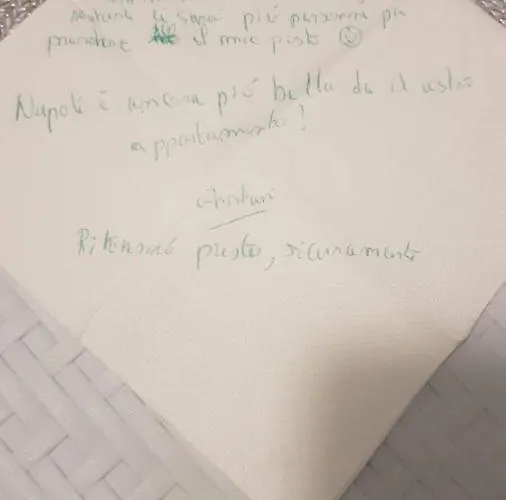 più persone per
prendere il mio posto
Napoli è ancora più bella da il vostro
appartamento!
Ritornerò presto, sicuramente